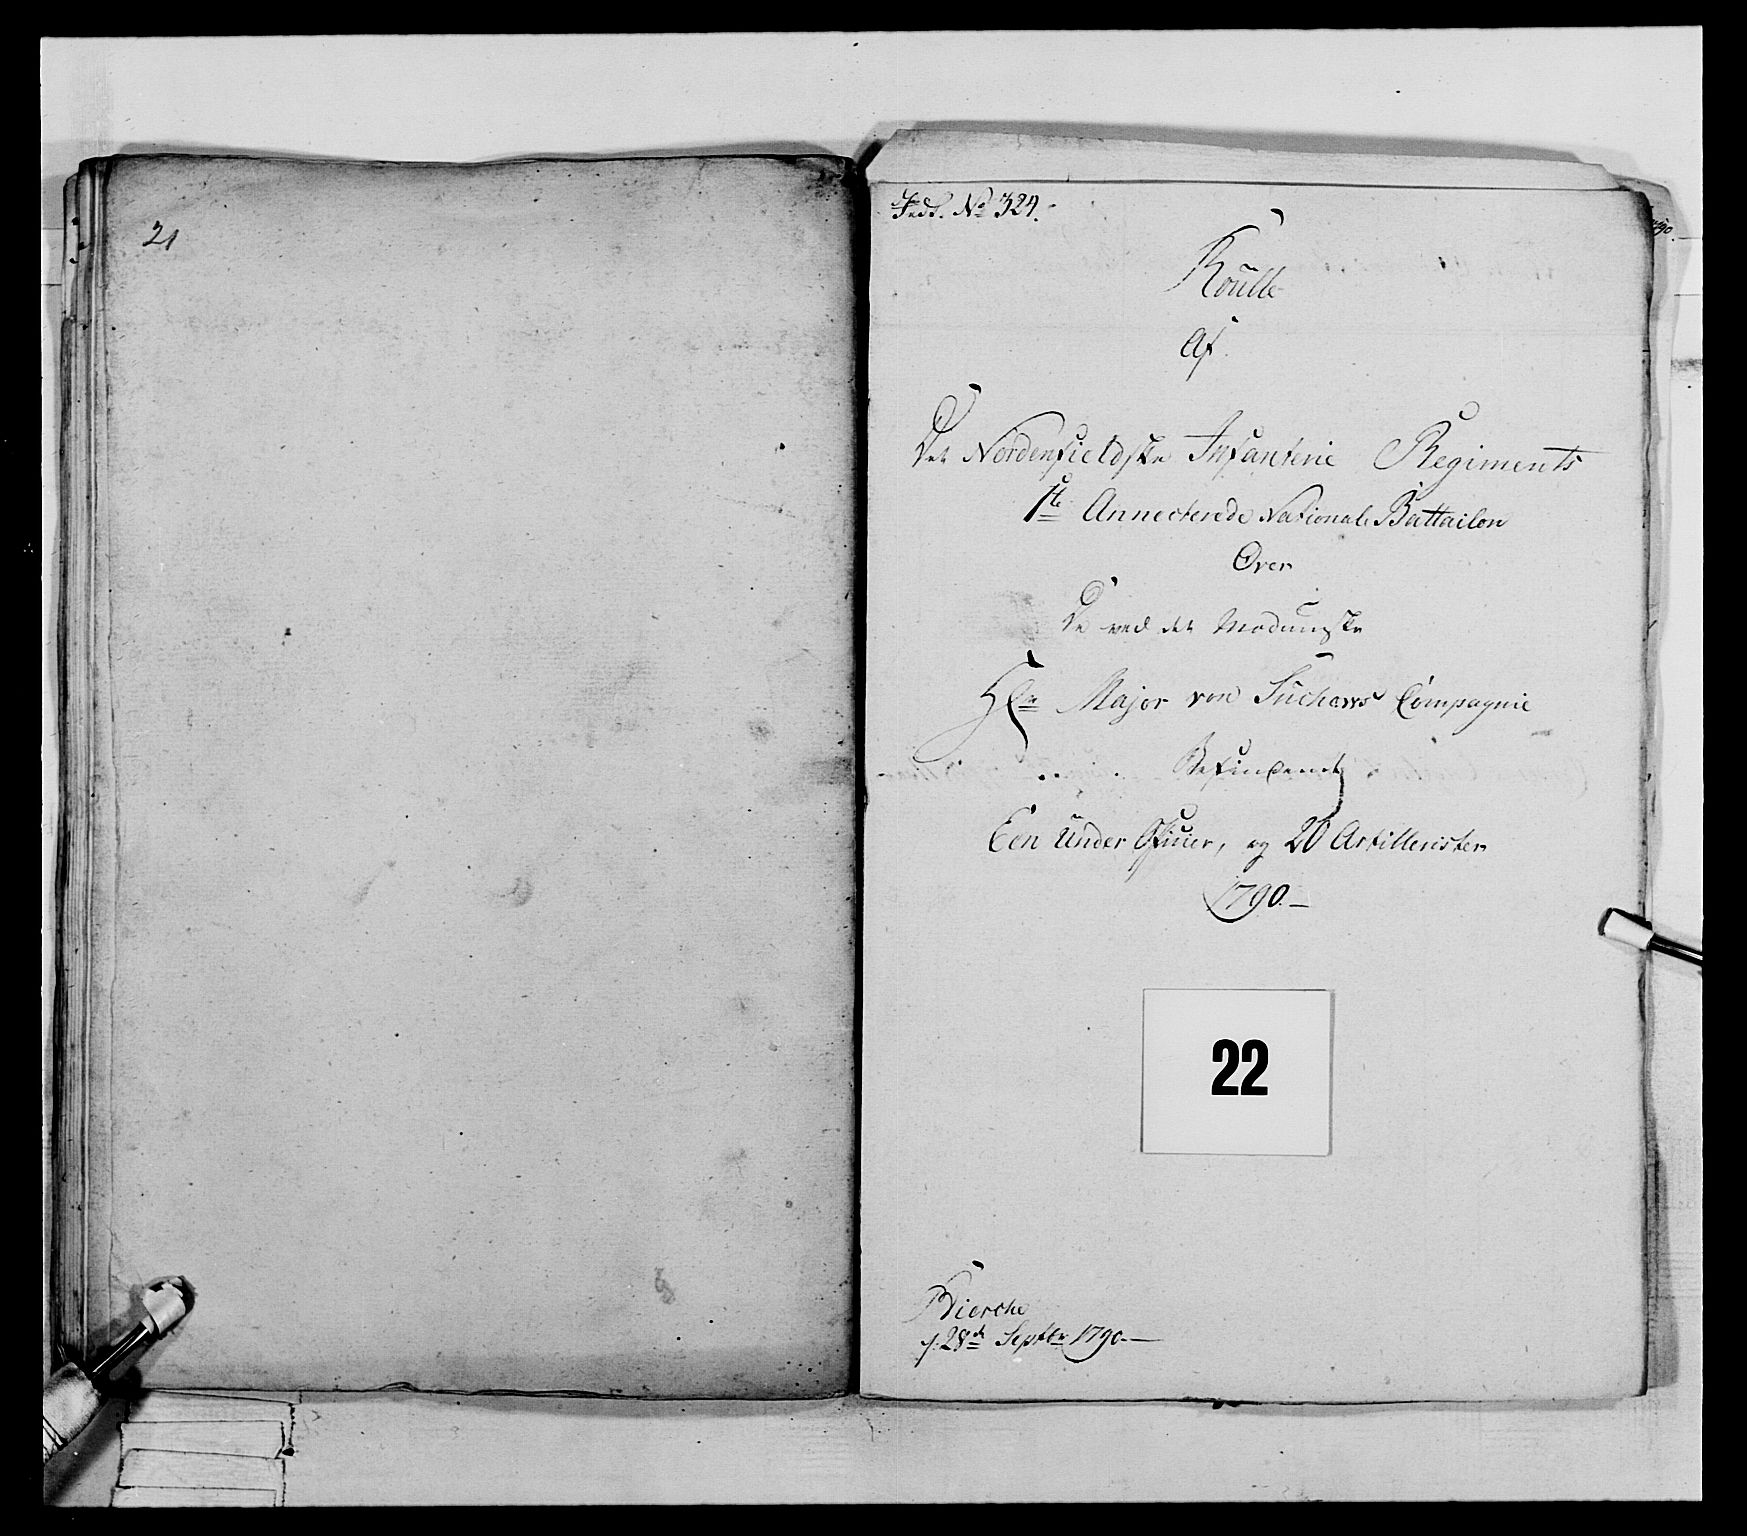 21
Indt. No 324.
Roulle
Af
Det Nordenfieldske Infanterie Regiments
1te Annecterede National Battailon
Over
De ved det Modumske
Hr Major von Suchows Compagnie
Befindende
Een Under Officier, og 20 Artillerister
1790.—
22
Bierche
d: 28de Septbr 1790.—